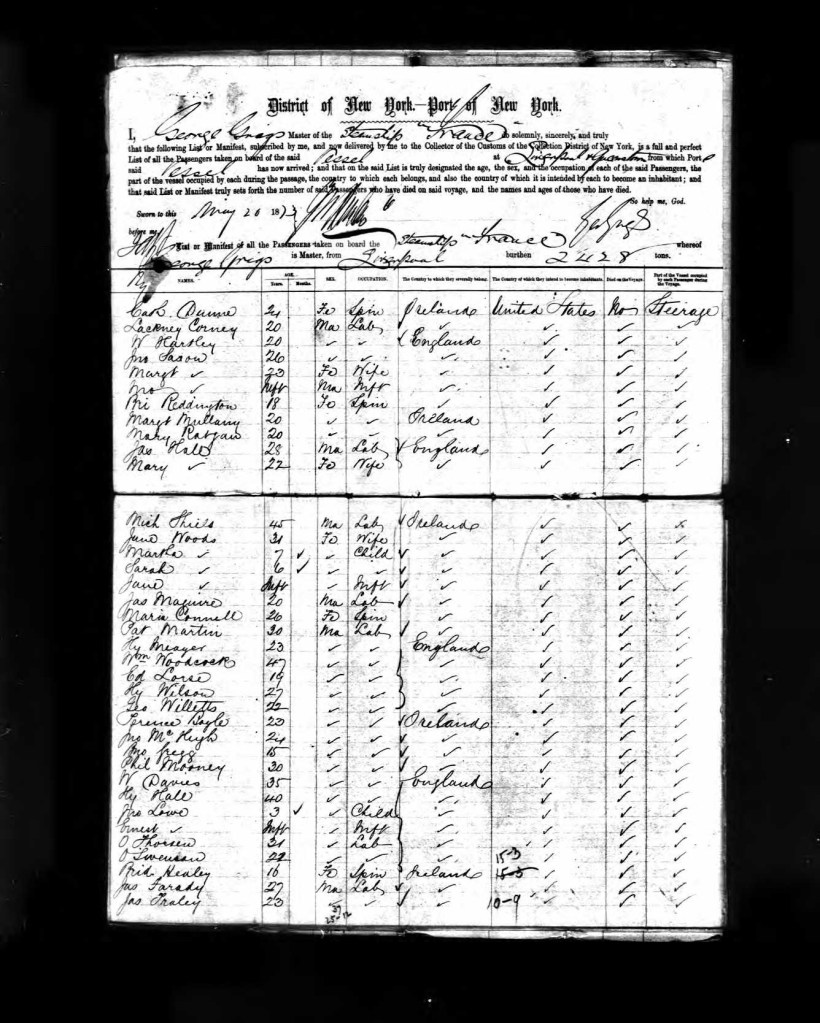 District of New York—Port of New York.
I, George Grogs Master of the Steamship "France" do solemnly, sincerely, and truly
that the following List or Manifest, subscribed by me, and now delivered by me to the Collector of the Customs of the Collection District of New York, is a full and perfect
List of all the Passengers taken on board of the said Vessel at Liverpool from which Port
said Vessel has now arrived; and that on the said List is truly designated the age, the sex, and the occupation of each of the said Passengers, the
part of the vessel occupied by each during the passage, the country to which each belongs, and also the country of which it is intended by each to become an inhabitant; and
that said List or Manifest truly sets forth the number of said Passengers who have died on said voyage, and the names and ages of those who have died.
So help me, God.
Sworn to this May 20 1873
before me
List or Manifest of all the PASSENGERS taken on board the Steamship "France" whereof
George Grogs is Master, from Liverpool burthen 2428 tons.
NAMES. AGE. Years. Months. SEX. OCCUPATION. The Country to which they severally belong. The Country of which they intend to become inhabitants. Died on the Voyage. Part of the Vessel occupied by each Passenger during the Voyage.
Cath Dunne 24 Fe Spin Ireland United States No Steerage
Lackney Corney 20 Ma Lab ✓ ✓ ✓ ✓
W Hartley 20 ✓ ✓ England ✓ ✓ ✓
Jno Sason 26 ✓ ✓ ✓ ✓ ✓ ✓
Margt ✓ 23 Fe Wife ✓ ✓ ✓ ✓
Jno ✓ Inft Ma Inft ✓ ✓ ✓ ✓
Bri Reddington 18 Fe Spin ✓ ✓ ✓ ✓
Margt Mullany 20 ✓ ✓ Ireland ✓ ✓ ✓
Mary 20 ✓ ✓ ✓ ✓ ✓ ✓
Jas Hall 28 Ma Lab England ✓ ✓ ✓
Mary ✓ 22 Fe Wife ✓ ✓ ✓ ✓
Mich Shiels 45 Ma Lab Ireland ✓ ✓ ✓
Jane Woods 31 Fe Wife ✓ ✓ ✓ ✓
Martha ✓ 7 ✓ ✓ Child ✓ ✓ ✓ ✓
Sarah ✓ 6 ✓ ✓ ✓ ✓ ✓ ✓ ✓
Jane ✓ Inft ✓ Inft ✓ ✓ ✓ ✓
Jas Maguire 20 Ma Lab ✓ ✓ ✓ ✓
Maria Connell 26 Fe Spin ✓ ✓ ✓ ✓
Pat Martin 30 Ma Lab ✓ ✓ ✓ ✓
Hy Meager 23 ✓ ✓ England ✓ ✓ ✓
Wm Woodcock 47 ✓ ✓ ✓ ✓ ✓ ✓
Ed Lorse 19 ✓ ✓ ✓ ✓ ✓ ✓
Hy Wilson 27 ✓ ✓ ✓ ✓ ✓ ✓
Geo Willetts 22 ✓ ✓ ✓ ✓ ✓ ✓
Terence Boyle 23 ✓ ✓ Ireland ✓ ✓ ✓
Jno McHugh 24 ✓ ✓ ✓ ✓ ✓ ✓
Jno Gregg 15 ✓ ✓ ✓ ✓ ✓ ✓
Phil Mooney 30 ✓ ✓ ✓ ✓ ✓ ✓
W Davies 35 ✓ ✓ England ✓ ✓ ✓
Hy Hall 40 ✓ ✓ ✓ ✓ ✓ ✓
Lowe 3 ✓ ✓ Child ✓ ✓ ✓ ✓
Ernest ✓ Inft ✓ Inft ✓ ✓ ✓ ✓
O Thorsen 31 ✓ Lab ✓ ✓ ✓ ✓
O Swenson 22 ✓ ✓ ✓ 15-3 ✓ ✓ ✓
Brid Healey 16 Fe Spin Ireland 15-5 ✓ ✓ ✓
Jas Farady 27 Ma Lab ✓ ✓ ✓ ✓
Jas Fraley 23 ✓ ✓ ✓ 10-9 ✓ ✓ ✓